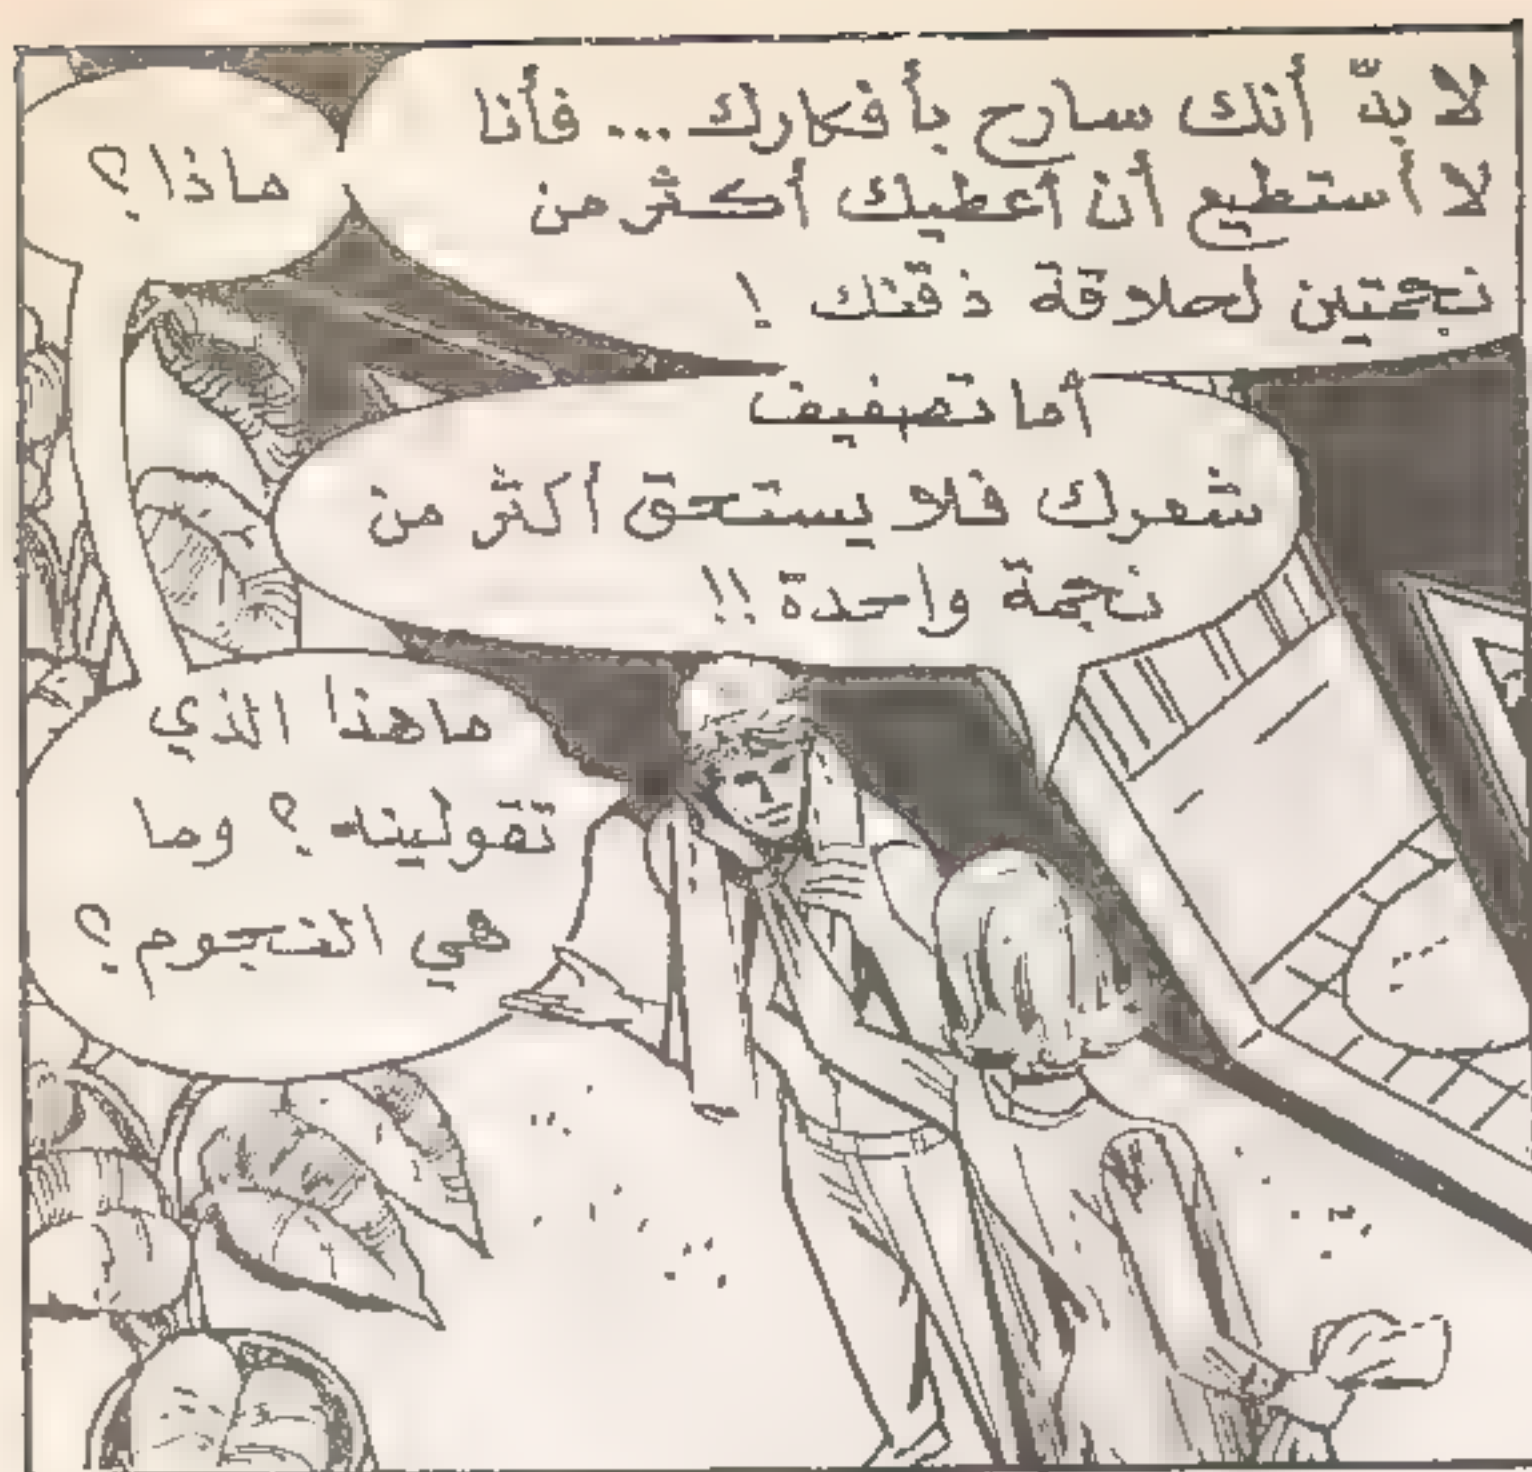 لا بدّ أنك سارح بأفكارك... فأنا
لا أستطيع أن أعطيك أكثر من
نجمتين لحلاقة ذقنك !
ماذا؟
أما تصفيف
شعرك فلا يستحق أكثر من
نجمة واحدة !!
ما هذا الذي
تقولينه ؟ وما
هي النجوم ؟